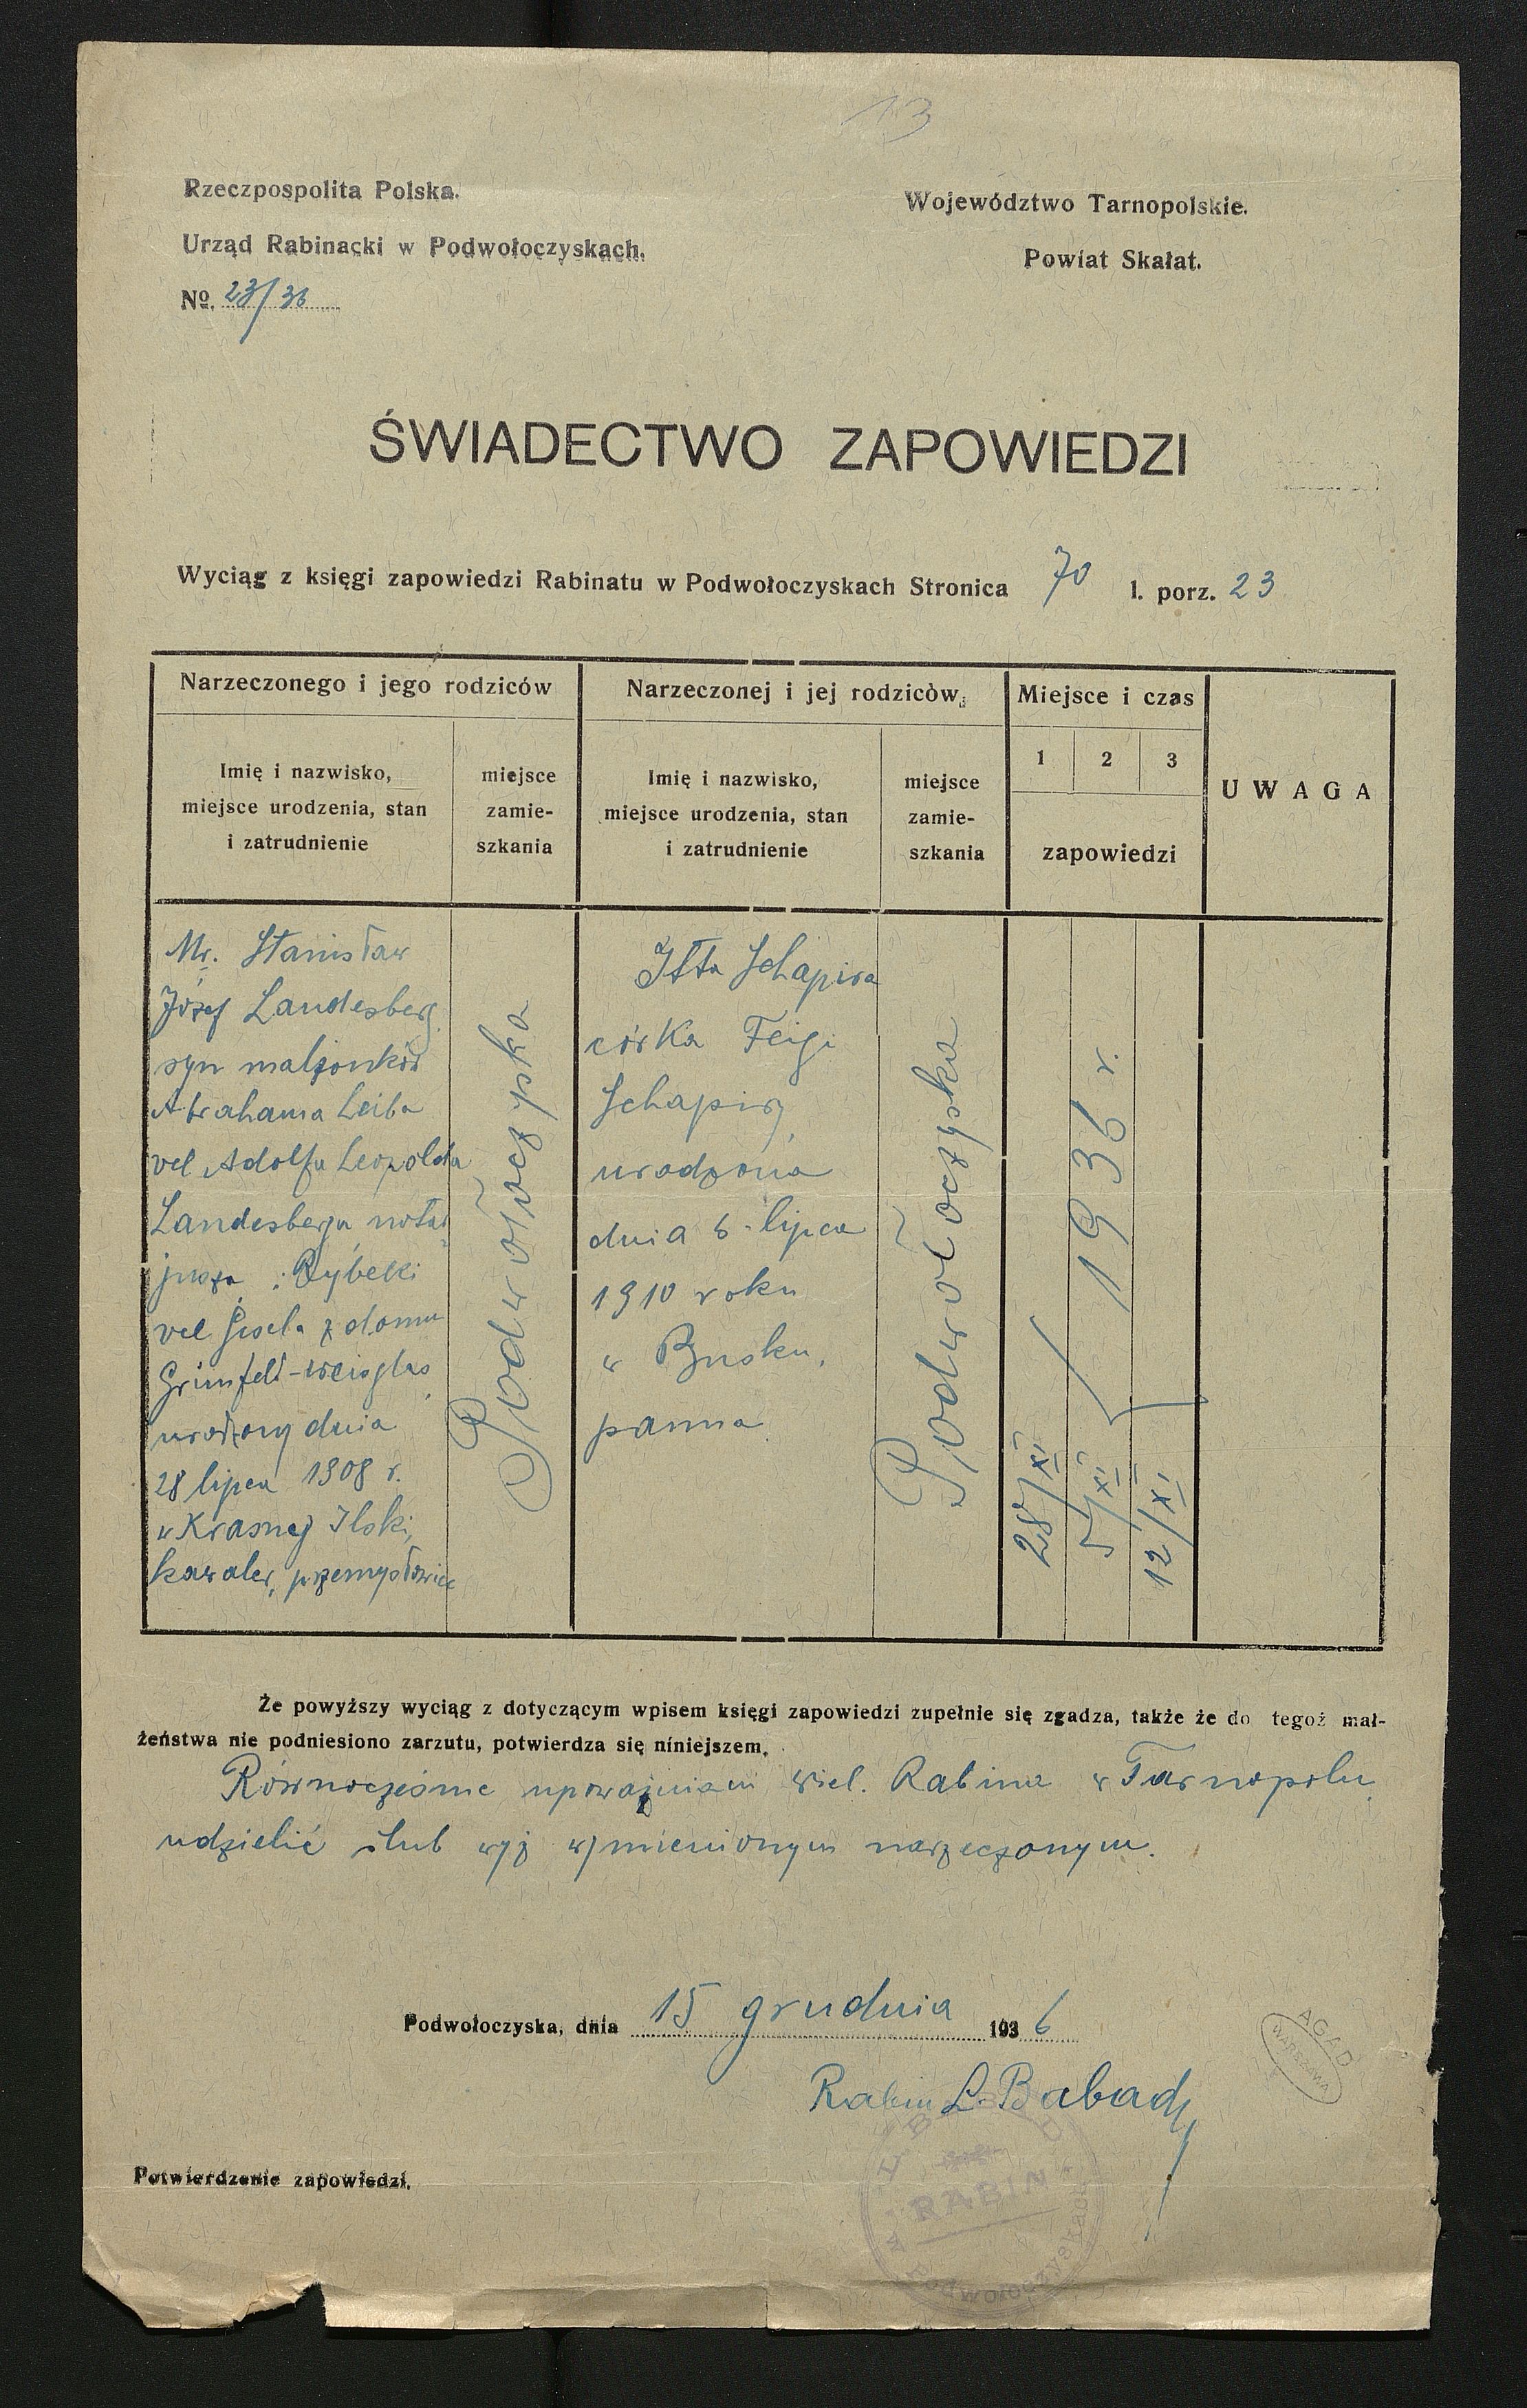 13
Rzeczpospolita Polska.
Województwo Tarnopolskie.
Urząd Rabinacki w Podwołoczyskach.
Powiat Skałat.
№. 23/36
ŚWIADECTWO ZAPOWIEDZI
Wyciąg z księgi zapowiedzi Rabinatu w Podwołoczyskach Stronica 70 l. porz. 23
Narzeczonego i jego rodziców
Imię i nazwisko,
miejsce urodzenia, stan
i zatrudnienie
miejsce
zamie-
szkania
Narzeczonej i jej rodziców
Imię i nazwisko,
miejsce urodzenia, stan
i zatrudnienie
miejsce
zamie-
szkania
Miejsce i czas
1 2 3
zapowiedzi
UWAGA
Mr. Stanisław
Józef Landesberg
syn małżonków
Abrahama Leiba
vel Adolfa Leopolda
Landesberga, notar
jusza i Rybeki
vel Gisela z domu
Grünfeld-Weisglas
urodzony dnia
28 lipca 1908 r.
w Krasnej Ilski,
kawaler, przemysłowiec
Podwołoczyska
Itta Schapira
córka Feigi
Schapiry,
urodzona
dnia 6. lipca
1910 roku
w Busku,
panna
Podwołoczyska
28/XI
5/XII
12/XII
1936 r.
Że powyższy wyciąg z dotyczącym wpisem księgi zapowiedzi zupełnie się zgadza, także że do tegoż mał-
żeństwa nie podniesiono zarzutu, potwierdza się niniejszem.
Równocześnie upoważniam Wiel. Rabina w Tarnopolu
udzielić ślub wyż wymienionym narzeczonym.
Podwołoczyska, dnia 15 grudnia 1936
Rabin L. Babad
AGAD
WARSZAWA
RABIN
w Podwołoczyskach
Potwierdzenie zapowiedzi.